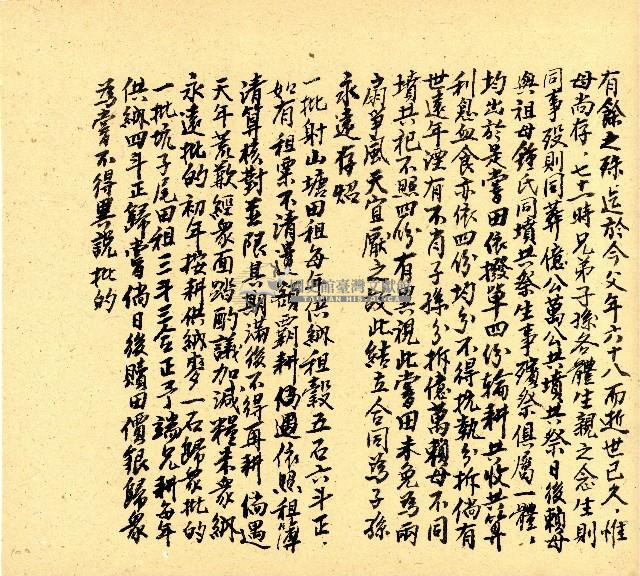 有餘之殃迄於今父年六十八而逝世已久惟
母尚存七十一時兄弟子孫各體生親之念生則
同事歿則同葬億公萬公共墳共祭日後賴母
與祖母鍾氏同墳共祭生事殯祭俱屬一體
均出於是嘗田依撥單四份輪耕共收共算
利息血食亦依四份均分不得抗執分拆倘有
世遠年湮有不肖子孫分拆億萬賴母不同
墳共祀不照四份有無視此嘗田未免為兩
扇爭風天宜厭之故此結立合同為子孫
永遠存炤
一批射山塘田租每年供納租穀五石六斗正
如有租粟不清霸耕偽遇依照租簿
清算核對並限其期滿後不得再耕倘遇
天年荒歉經眾面踏酌議加減糧米眾納
永遠批的初年按耕供納谷一石歸眾批的
一批坑子尾田租三斗三合正丁端兄耕每年
供納四斗正歸嘗倘日後贖田價銀歸眾
為嘗不得異說批的
國史館臺灣文獻館